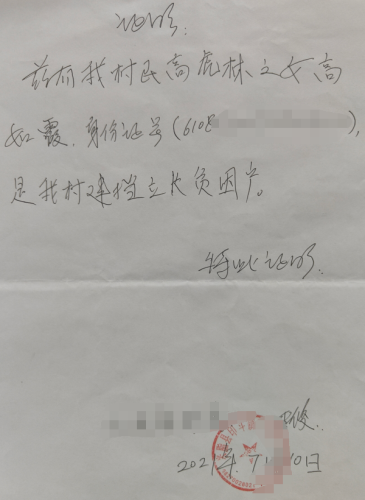 证明.
兹有我村民高虎林之女高
如霞.身份证号(6108),
是我村建档立卡贫困户。
特此证明.
2021年 10日